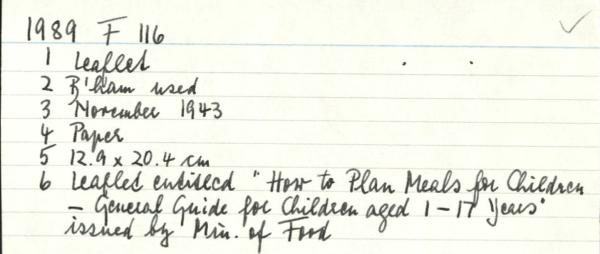 1989 F 116
1 Leaflet
2 B'ham used
3 November 1943
4 Paper
5 12.9 x 20.4 cm
6 Leaflet entitled "How to Plan Meals for Children
– General Guide for Children aged 1–17 Years"
issued by Min. of Food